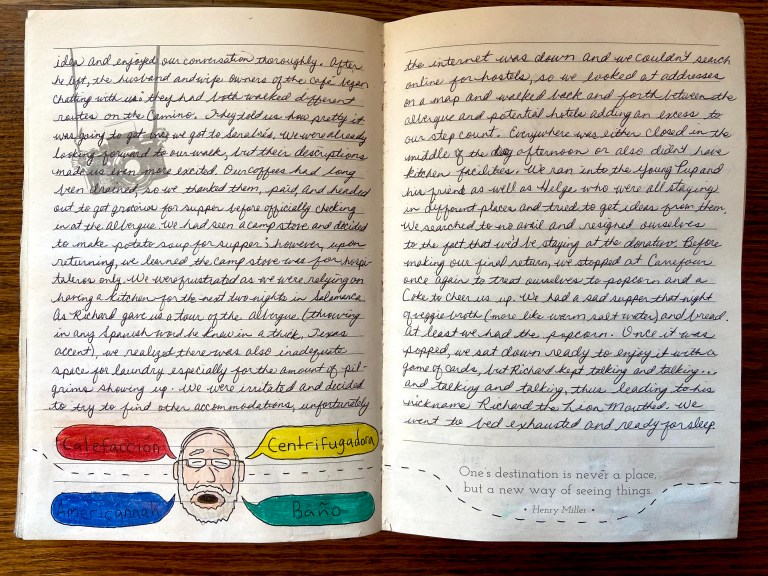 idea and enjoyed our conversation thoroughly. After
he left, the husband and wife owners of the café began
chatting with us: they had both walked different
routes on the Camino. They told us how pretty it
was going to get once we got to Senabés. We were already
looking forward to our walk, but their descriptions
made us even more excited. Our coffees had long
been drained, so we thanked them, paid and headed
out to get groceries for supper before officially checking
in at the albergue. We had seen a camp stove and decided
to make potato soup for supper; however, upon
returning, we learned the camp stove was for hospi-
taleros only. We were frustrated as we were relying on
having a kitchen for the next two nights in Salamanca.
As Richard gave us a tour of the albergue (throwing
in any Spanish word he knew in a thick, Texas
accent), we realized there was also inadequate
space for laundry especially for the amount of pil-
grims showing up. We were irritated and decided
to try to find other accommodations, unfortunately
Calefaccion
Centrifugadora
Americannah
Baño
the internet was down and we couldn't search
online for hostels, so we looked at addresses
on a map and walked back and forth between the
albergue and potential hotels adding an excess to
our step count. Everywhere was either closed in the
middle of the day afternoon or also didn't have
kitchen facilities. We ran into the Young Pup and
his friend as well as Helge who were all staying
in different places and tried to get ideas from them.
We searched to no avail and resigned ourselves
to the fact that we'd be staying at the donativo. Before
making our final return, we stopped at Carrefour
once again to treat ourselves to popcorn and a
Coke to cheer us up. We had a sad supper that night
of veggie broth (more like warm salt water) and bread.
At least we had the popcorn. Once it was
popped, we sat down ready to enjoy it with a
game of cards, but Richard kept talking and talking...
and talking and talking, thus leading to his
nickname Richard the Lion Mouthed. We
went to bed exhausted and ready for sleep
One's destination is never a place,
but a new way of seeing things.
• Henry Miller •